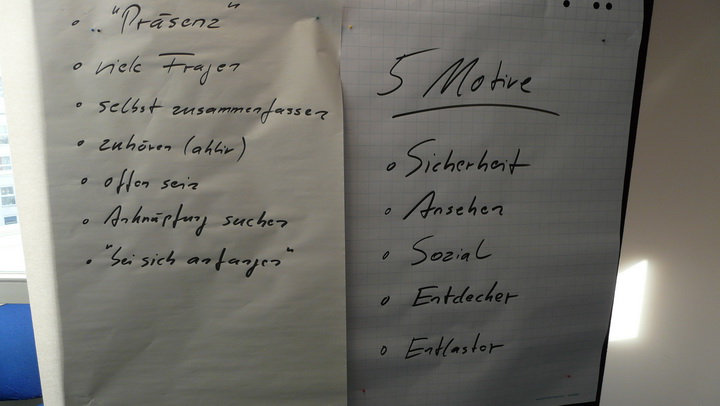 "Präsenz"
viele Fragen
selbst zusammenfassen
zuhören (aktiv)
offen sein
Anknüpfung suchen
"bei sich anfangen"
5 Motive
Sicherheit
Ansehen
Sozial
Entdecker
Entlaster